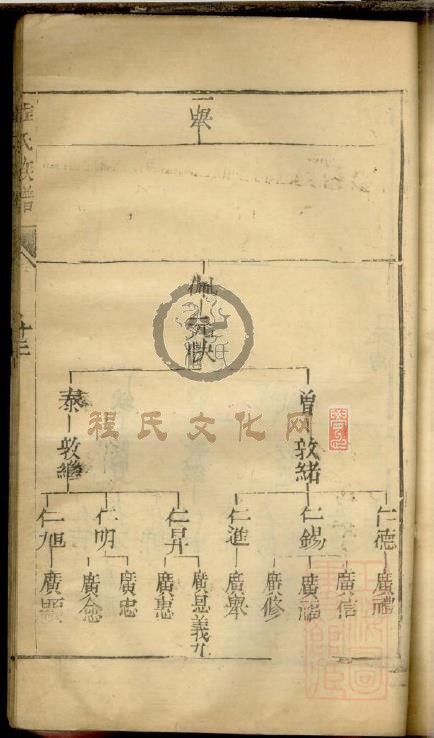 舉
佩
元
曾
敦緒
泰
敦繼
仁德
仁錫
仁進
仁昇
仁明
仁旭
廣禮
廣信
廣福
廣修
廣舉
廣恩義九
廣惠
廣忠
廣念
廣顯
氏族譜
十三
程氏文化网